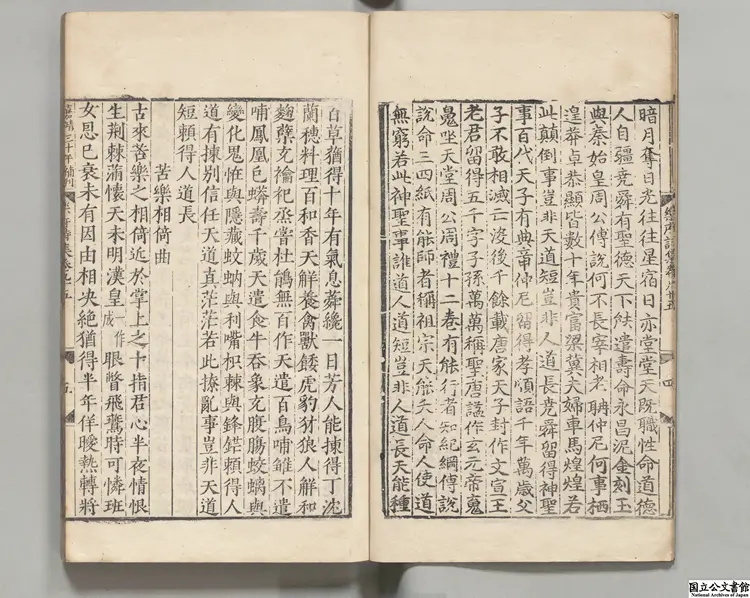 暗月奪日光往往星宿日亦堂堂天既職性命道德
人自疆堯舜有聖德天下䏻遣壽命永昌泥金刻玉
與秦始皇周公傅說何不長宰相老聃仲尼何事栖
遑莽卓恭顯皆數十年貴富梁冀夫婦車馬煌煌若
此顛倒事豈非天道短豈非人道長堯舜留得神聖
事百代天子有典章仲尼留得孝順語千年萬歲父
子不敢相滅亡沒後千餘載唐家天子封作文宣王
老君留得五千字子孫萬萬稱聖唐謚作玄元帝魂
魄坐天堂周公周禮十二卷有䏻行者知紀綱傅說
說命三四紙有䏻師者稱祖宗天䏻夭人命人使道
無窮若此神聖事誰道人道短豈非人道長天䏻種
四
百草蕕得十年有氣息蕣纔一日芳人能揀得丁沈
蘭蕙料理百和香天解養禽獸餧虎豹犲狼人解和
麹糵充禴祀烝嘗杜鵑無百作天遣百鳥哺雛不遣
哺鳳凰巨蟒壽千歲天遣食牛吞象充腹腸蛟螭與
變化鬼恠與隱藏蚊蚋與利觜枳棘與鋒鋩賴得人
道有揀别信任天道直茫茫若此撩亂事豈非天道
短賴得人道長
苦樂相倚曲
古來苦樂之相倚近於掌上之十指君心半夜猜恨
生荆棘滿懷天未明漢皇一作成眼瞥飛鷰時可憐班
女恩已衰未有因由相决絶猶得半年佯暖熱轉將
五
国立公文書館
National Archives of Japan